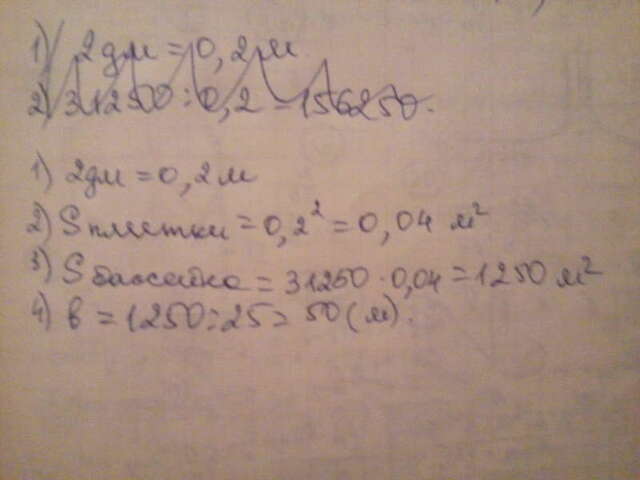 1) 2дм = 0,2 м
2) 312500 : 0,2 = 156250.
1) 2дм = 0,2 м
2) S плитки = 0,2² = 0,04 м²
3) S бассейна = 31250 · 0,04 = 1250 м²
4) в = 1250 : 25 = 50 (м).